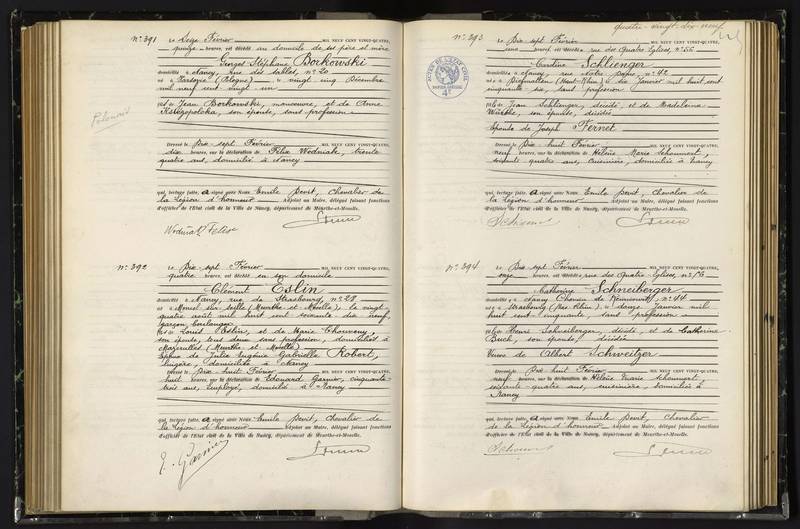 N° 391 Le Seize Février MIL NEUF CENT VINGT-QUATRE,
quinze heures, est décédé au domicile de ses père et mère
Georges Stéphane Borkowski
domicilié à Nancy, rue des Sables, n° 20
né à Varsovie (Pologne) le vingt cinq Décembre
mil neuf cent vingt un
fils de Jean Borkowski, manœuvre, et de Anne
son épouse, sans profession
Dressé le Dix sept Février MIL NEUF CENT VINGT-QUATRE,
dix heures, sur la déclaration de Félix Wodniak, trente
quatre ans, domicilié à Nancy
qui, lecture faite, a signé avec Nous Emile Devit, Chevalier de
la Légion d'honneur Adjoint au Maire, délégué faisant fonctions
d'officier de l'Etat civil de la Ville de Nancy, département de Meurthe-et-Moselle.
N° 392 Le Dix sept Février MIL NEUF CENT VINGT-QUATRE,
quatre heures, est décédé en son domicile
Clément Eslin
domicilié à Nancy, rue de Strasbourg, n° 28
né à Moncel sur Seille (Meurthe et Moselle) le vingt
quatre août mil huit cent soixante dix neuf,
garçon boulanger
fils de Louis Eslin, et de Marie Chouveny,
son épouse, tous deux sans profession, domiciliés à
Mazerulles (Meurthe et Moselle)
Epoux de Julie Eugénie Gabrielle Robert,
lingère, domiciliée à Nancy
Dressé le Dix huit Février MIL NEUF CENT VINGT-QUATRE,
huit heures, sur la déclaration de Edouard Garnier, cinquante
trois ans, employé, domicilié à Nancy
qui, lecture faite, a signé avec Nous Emile Devit, Chevalier de
la Légion d'honneur Adjoint au Maire, délégué faisant fonctions
d'officier de l'Etat civil de la Ville de Nancy, département de Meurthe-et-Moselle.
E. Garnier
quatre-vingt-dix neuf
N° 393 Le Dix sept Février MIL NEUF CENT VINGT-QUATRE,
heures, est décédée rue des Quatre Eglises, n° 56
Caroline Schlienger
domiciliée à Nancy, rue Notre Dame, n° 42
née à (Haut-Rhin) le dix Janvier mil huit cent
cinquante six, sans profession
fille de Jean Schlienger, décédé, et de Madeleine
son épouse, décédée
Epouse de Joseph Fernet
Dressé le Dix huit Février MIL NEUF CENT VINGT-QUATRE,
neuf heures, sur la déclaration de Hélène Marie
soixante quatre ans, cuisinière, domiciliée à Nancy
qui, lecture faite, a signé avec Nous Emile Devit, Chevalier de
la Légion d'honneur Adjoint au Maire, délégué faisant fonctions
d'officier de l'Etat civil de la Ville de Nancy, département de Meurthe-et-Moselle.
N° 394 Le Dix sept Février MIL NEUF CENT VINGT-QUATRE,
onze heures, est décédée rue des Quatre Eglises, n° 56
Catherine Schneiberger
domiciliée à Nancy Chemin de n° 44
née à Strasbourg (Bas-Rhin) le douze Janvier mil
huit cent cinquante, sans profession
fille de Henri Schneiberger, décédé, et de Catherine
Buch, son épouse, décédée
Veuve de Albert Schweitzer
Dressé le Dix huit Février MIL NEUF CENT VINGT-QUATRE,
neuf heures, sur la déclaration de Hélène Marie
soixante quatre ans, cuisinière, domiciliée à
Nancy
qui, lecture faite, a signé avec Nous Emile Devit, Chevalier
de la Légion d'honneur Adjoint au Maire, délégué faisant fonctions
d'officier de l'Etat civil de la Ville de Nancy, département de Meurthe-et-Moselle.